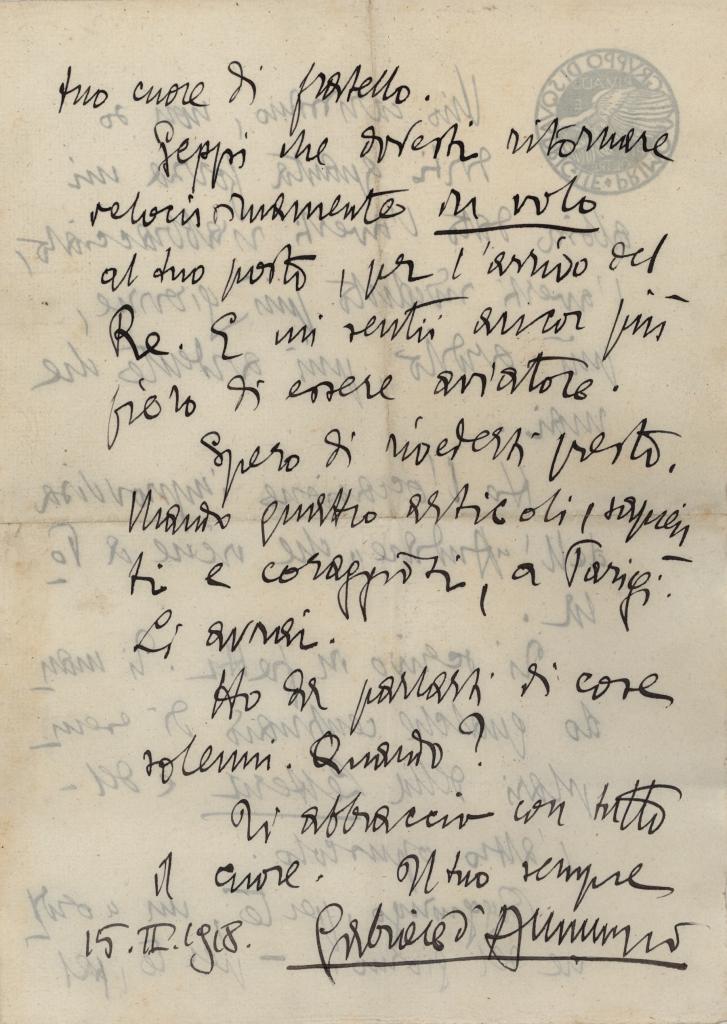 tuo cuore di fratello.
Seppi che dovesti ritornare
velocissimamente in volo
al tuo posto, per l'arrivo del
Re. E mi sentii ancor più
fiero di essere aviatore.
Spero di rivederti presto.
Mando quattro articoli, sapien
ti e coraggiosi, a Parigi.
Li avrai.
Ho da parlarti di cose
solenni. Quando?
Ti abbraccio con tutto
il cuore. Il tuo sempre
15.III.1918. Gabriele d'Annunzio